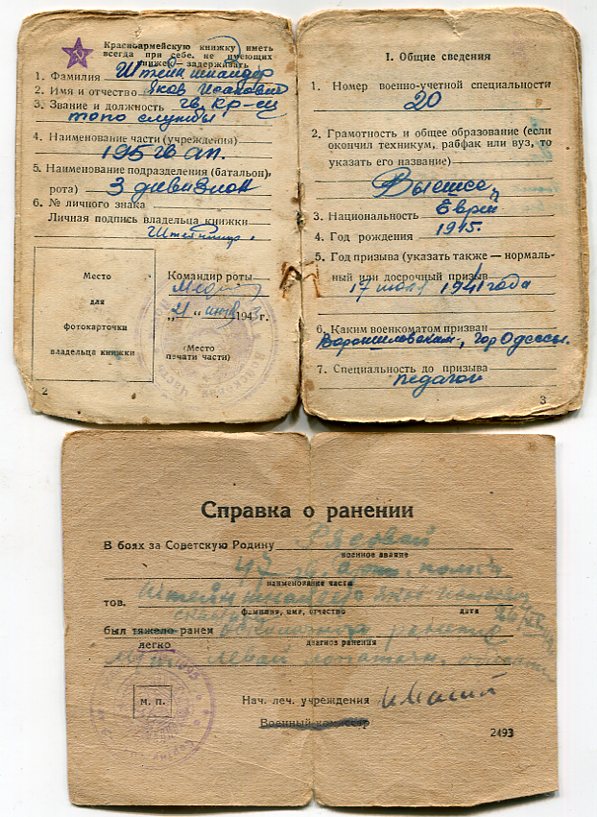 Красноармейскую книжку иметь
всегда при себе. Не имеющих
книжек — задерживать
1. Фамилия Штейншнайдер
2. Имя и отчество Яков Исаакович
3. Звание и должность гв. кр-ец
топо службы
4. Наименование части (учреждения)
195 гв ап.
5. Наименование подразделения (батальон,
рота) 3 дивизион
6. № личного знака
Личная подпись владельца книжки
Место
для
фотокарточки
владельца книжки
Командир роты
„21“ 194 г.
(Место
печати части)
2
I. Общие сведения
1. Номер военно-учетной специальности
20
2. Грамотность и общее образование (если
окончил техникум, рабфак или вуз, то
указать его название)
Высшее
3. Национальность Еврей
4. Год рождения 1915.
5. Год призыва (указать также — нормаль-
ный или досрочный призыв
17 июля 1941 года
6. Каким военкоматом призван
Ворошиловским, гор Одессы.
7. Специальность до призыва
педагог
3
Справка о ранении
В боях за Советскую Родину Рядовой
военное звание
наименование части
тов.
фамилия, имя, отчество дата
был тяжело ранен ранение
легко диагноз ранения
левой лопаточн. области
м. п.
Нач. леч. учреждения
Военный комиссар
2493